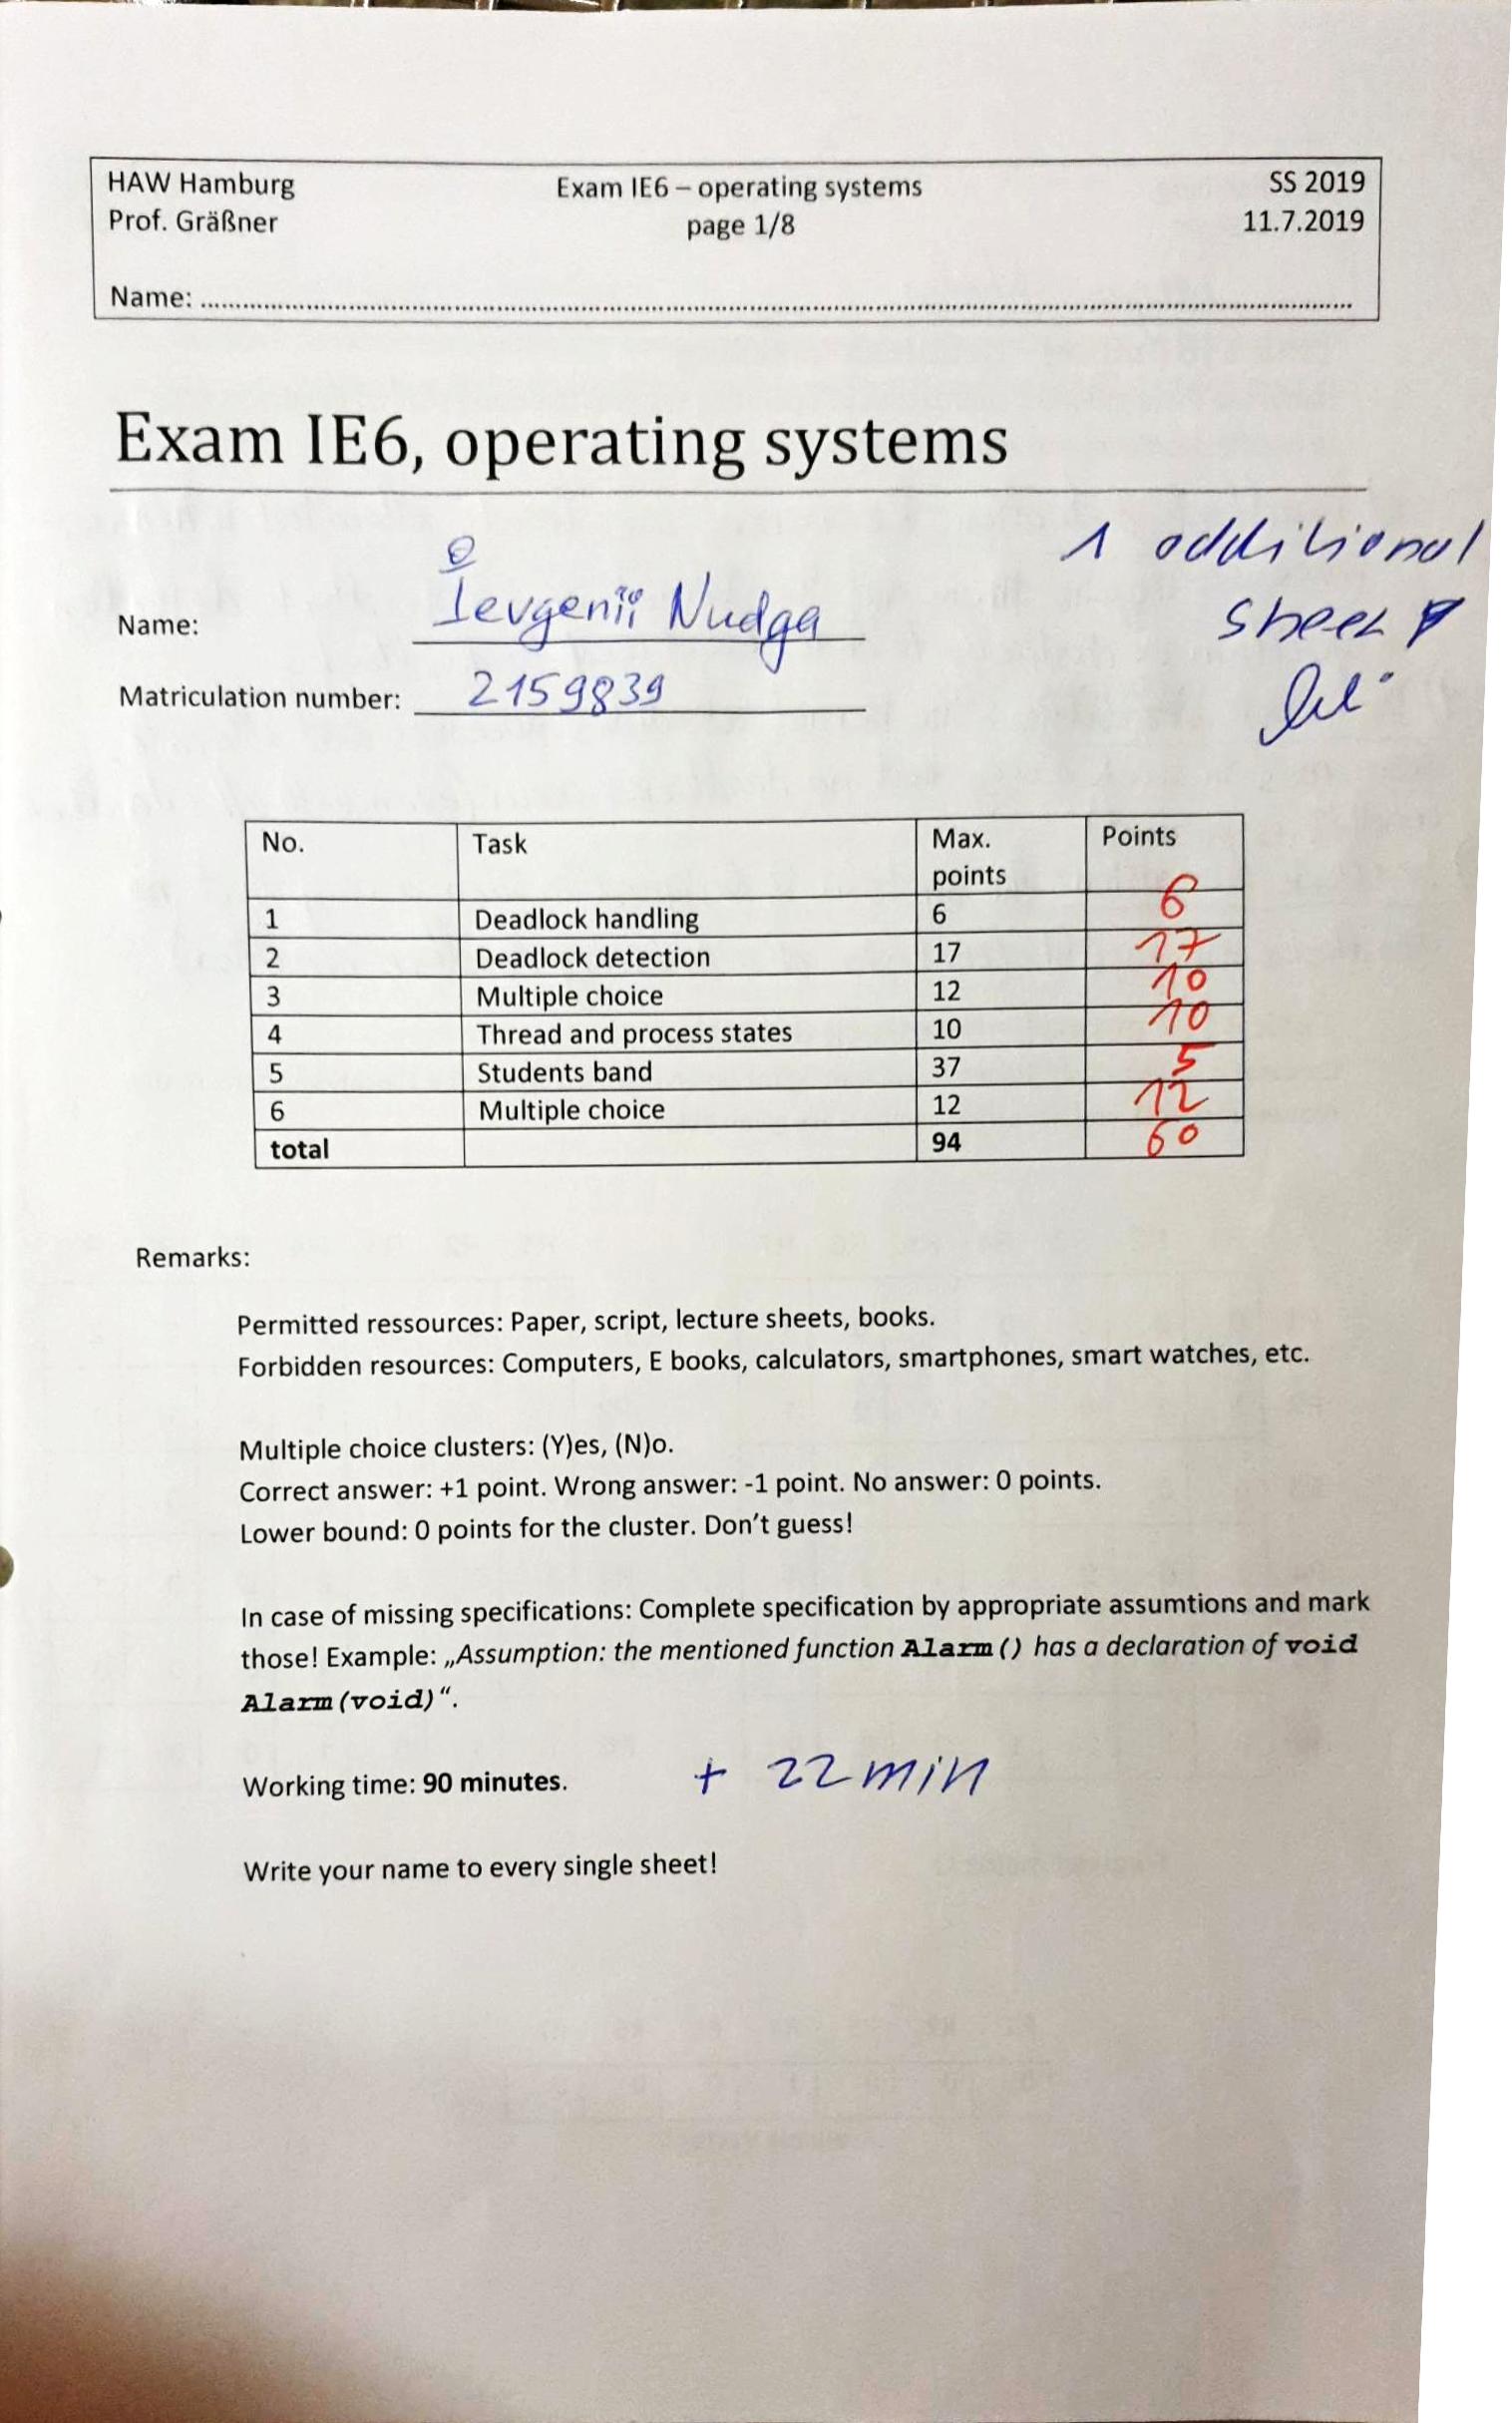 HAW Hamburg Exam IE6 – operating systems SS 2019
Prof. Gräßner page 1/8 11.7.2019
Name: ........................................................
Exam IE6, operating systems
1 additional
sheet
Name: Ievgenii Nudga
Matriculation number: 2159839
No. Task Max. points Points
1 Deadlock handling 6 6
2 Deadlock detection 17 17
3 Multiple choice 12 10
4 Thread and process states 10 10
5 Students band 37 5
6 Multiple choice 12 12
total 94 60
Remarks:
Permitted ressources: Paper, script, lecture sheets, books.
Forbidden resources: Computers, E books, calculators, smartphones, smart watches, etc.
Multiple choice clusters: (Y)es, (N)o.
Correct answer: +1 point. Wrong answer: -1 point. No answer: 0 points.
Lower bound: 0 points for the cluster. Don't guess!
In case of missing specifications: Complete specification by appropriate assumtions and mark
those! Example: „Assumption: the mentioned function Alarm() has a declaration of void
Alarm(void)“.
Working time: 90 minutes. + 22 min
Write your name to every single sheet!